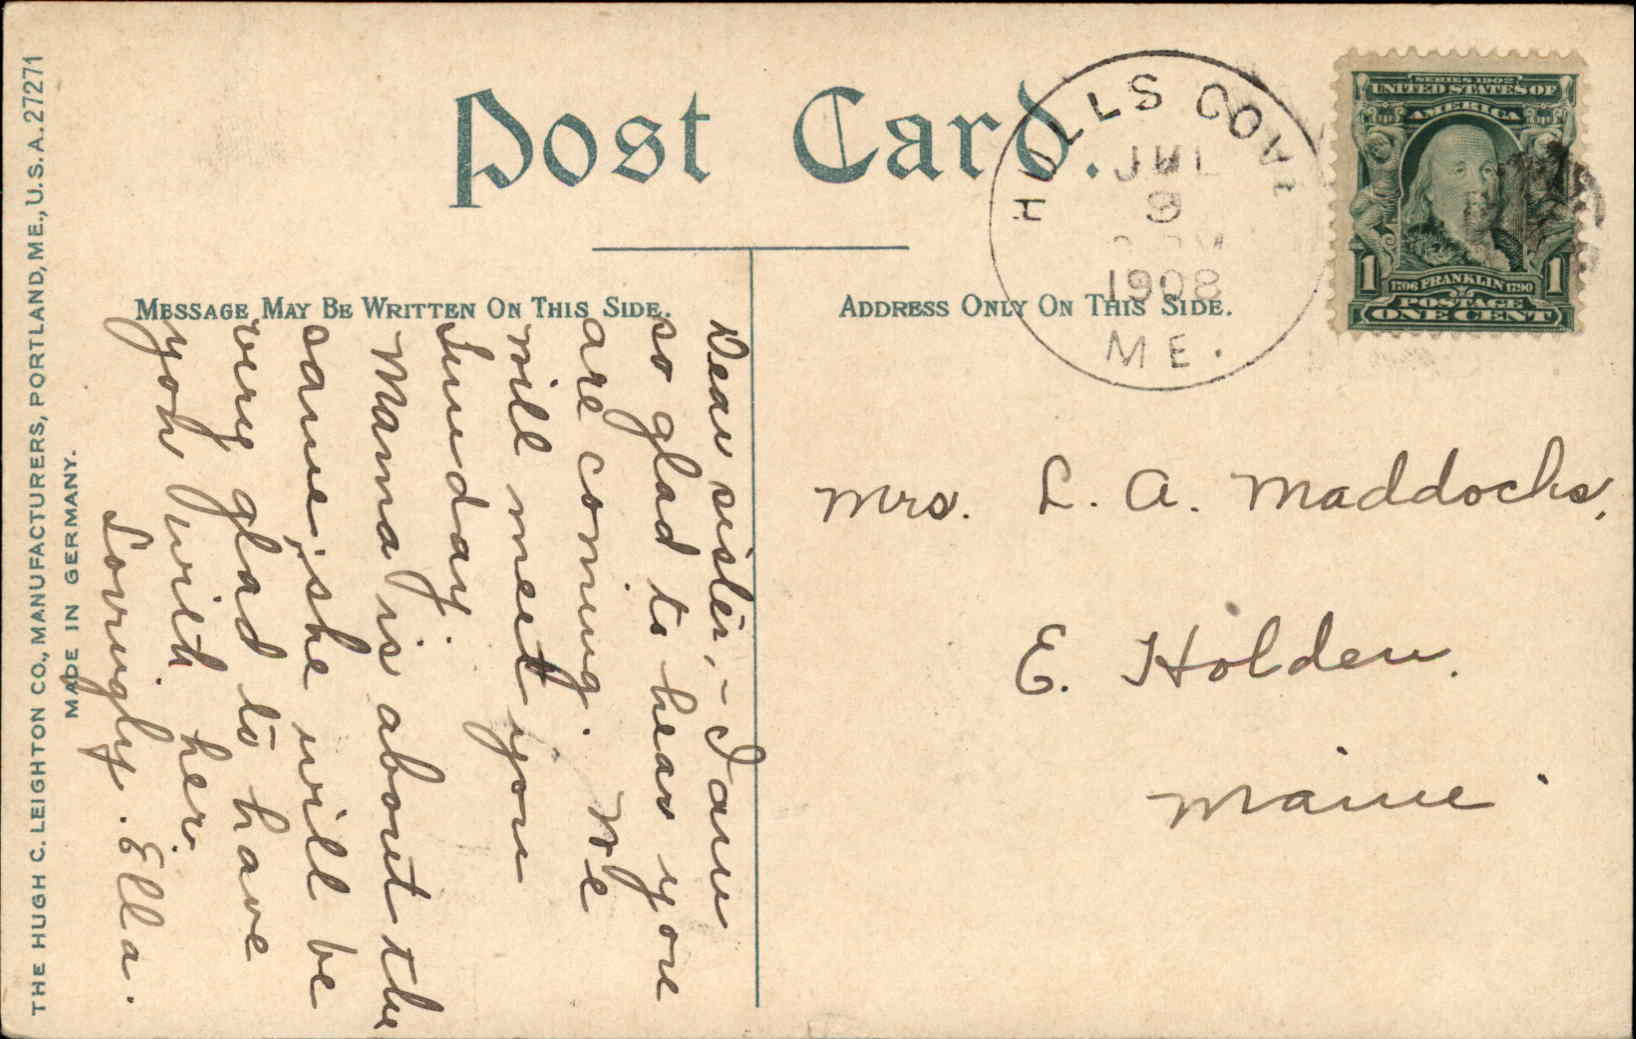 Post Card.
MESSAGE MAY BE WRITTEN ON THIS SIDE.
ADDRESS ONLY ON THIS SIDE.
HULLS COVE
JUL
9
1908
ME.
SERIES 1902
UNITED STATES OF
AMERICA
1 1
1706 FRANKLIN 1790
POSTAGE
ONE CENT
Dear sister,- I am
so glad to hear you
are coming. We
will meet you
Sunday.
Mama is about the
same; she will be
very glad to have
you with her.
Lovingly. Ella.
Mrs. L. A. Maddocks,
E. Holden.
Maine
THE HUGH C. LEIGHTON CO., MANUFACTURERS, PORTLAND, ME., U.S.A. 27271
MADE IN GERMANY.